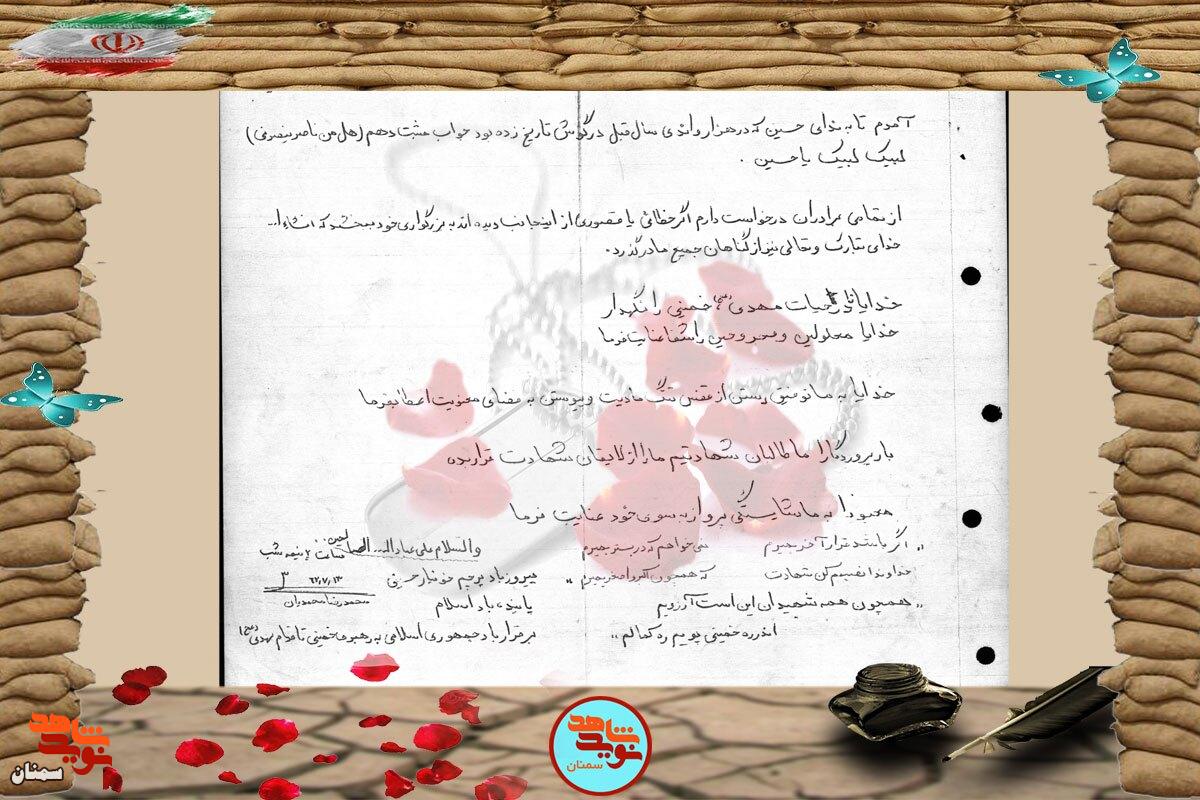 آمدم تا به ندای حسین که در هزار و اندی سال قبل در گوش تاریخ زده بود جواب مثبت دهم (هل من ناصر ینصرنی)
لبیک لبیک یا حسین .
از تمامی برادران درخواست دارم اگر خطائی یا قصوری از اینجانب دیده اند به بزرگواری خود ببخشند که انشاءا...
خدای تبارک و تعالی نیز از گناهان جمیع ما درگذرد.
خدایا تا در حیات مهدی (عج) خمینی را نگهدار
خدایا معلولین و مجروحین را شفا عنایت فرما
خدایا به ما توفیق رستن از قفس تنگ مادیت و پیوستن به فضای معنویت اعطا بفرما
بار پروردگارا ما طالبان شهادتیم ما را از لایقان شهادت قرار بده
معبودا به ما شایستگی پرواز به سوی خود عنایت فرما
,, اگر باشد قرار آخر بمیرم نمی خواهم که در بستر بمیرم
خداوندا نصیبم کن شهادت که همچون اکبر و اصغر بمیرم ,,
,, همچون همه شهیدان این است آرزویم
اندر ره خمینی پویم ره کمالم ,,
والسلام علی عباد الله الصالحین
پیروز باد پرچم خونبار حسینی
پاینده باد اسلام
برقرار باد جمهوری اسلامی به رهبری خمینی تا قیام مهدی (عج)
ساعت ۲ نیمه شب
۶۲/۷/۱۳
محمدرضا محمدیان
شاهد
نوید
سمنان
شاهد
نوید
سمنان